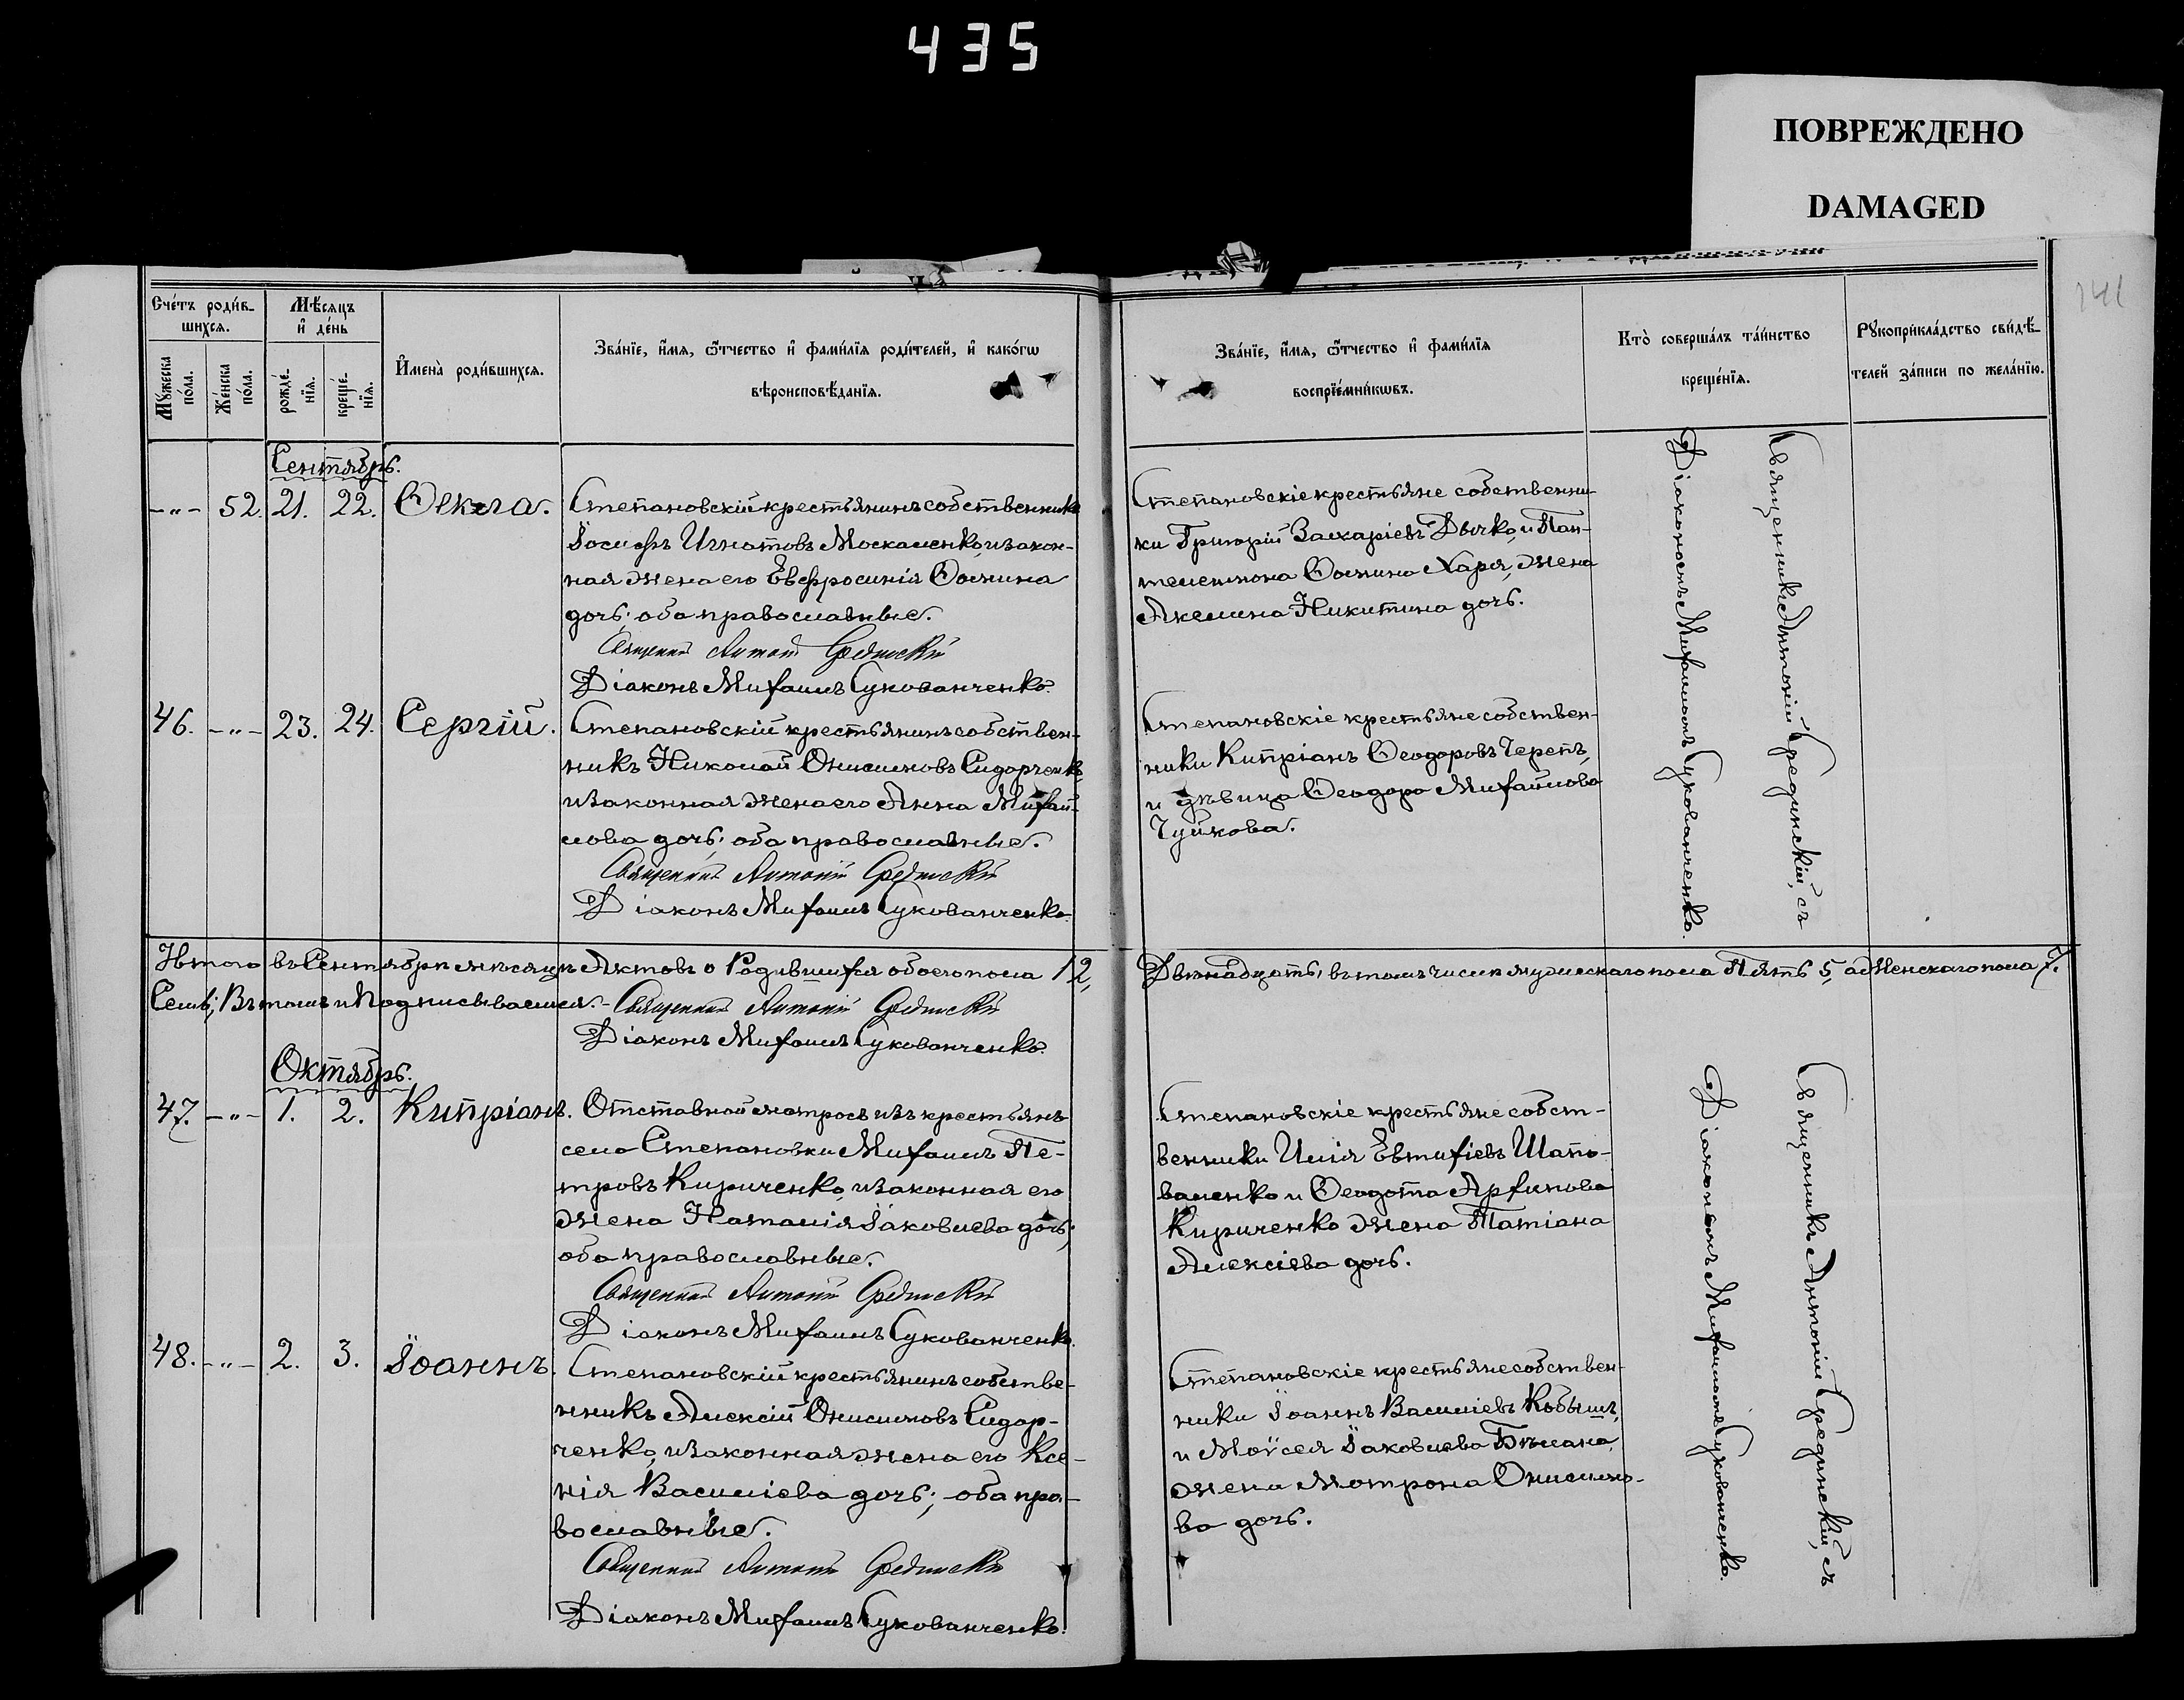 435
ПОВРЕЖДЕНО
DAMAGED
141
Счéтъ роди́в-
шихся.
Мѣ́сяцъ
и҆ де́нь
Мꙋ́жеска
по́ла.
Же́нска
по́ла.
рожде́-
нїѧ.
креще́-
нїѧ.
И҆мена̀ роди́вшихсѧ.
Зва́нїе, и҆́мѧ, ѻ҆́тчество и҆ фами́лїѧ роди́телей, и҆ како́гѡ
вѣроисповѣ́данїѧ.
Зва́нїе, и҆́мѧ, ѻ҆́тчество и҆ фами́лїѧ
воспрїе́мникѡвъ.
Кто̀ соверша́лъ та́инство
креще́нїѧ.
Рꙋкоприкла́дство свидѣ́-
телей за́писи по жела́нїю.
Сентябрь.
-"- 52. 21. 22. Ѳекла.
Степановскій крестьянинъ собственникъ
Іосифъ Игнатовъ Москаленко, и закон-
ная жена его Евфросинія Ѳомина
дочь; оба православные.
Священникъ Антоній Срединскій
Діаконъ Михаилъ Сукованченко.
Степановскіе крестьяне собственни-
ки Григорій Захаріевъ Дычко, и Пан-
телеимона Ѳомина Харя, жена
Акелина Никитина дочь.
46. -"- 23. 24. Сергій.
Степановскій крестьянинъ собствен-
никъ Николай Онисимовъ Сидорченко,
и законная жена его Анна Михаи-
лова дочь; оба православные.
Священникъ Антоній Срединскій
Діаконъ Михаилъ Сукованченко.
Степановскіе крестьяне собствен-
ники Кипріанъ Ѳеодоровъ Черепъ,
и дѣвица Ѳеодора Михайлова
Чуйкова.
Священникъ Антоній Срединскій, съ
Діакономъ Михаиломъ Сукованченко.
Итого въ Сентябрѣ мѣсяцѣ Актовъ о Родившихся обоего пола 12, Двѣнадцать, въ томъ числѣ мужескаго пола Пять 5, а Женскаго пола 7.
Семь; Въ томъ и Подписываемся.- Священникъ Антоній Срединскій
Діаконъ Михаилъ Сукованченко.
Октябрь.
47. -"- 1. 2. Кипріанъ.
Отставной матросъ изъ крестьянъ
села Степановки Михаилъ Пе-
тровъ Кириченко, и законная его
жена Наталія Іаковлева дочь;
оба православные.
Священникъ Антоній Срединскій
Діаконъ Михаилъ Сукованченко.
Степановскіе крестьяне собст-
венники Илія Евтихіевъ Шапо-
валенко и Ѳеодота Архипова
Кириченко жена Татіана
Алексіева дочь.
48. -"- 2. 3. Іоаннъ.
Степановскій крестьянинъ собстве-
нникъ Алексій Онисимовъ Сидор-
ченко, и законная жена его Ксе-
нія Василіева дочь; оба пра-
вославные.
Священникъ Антоній Срединскій
Діаконъ Михаилъ Сукованченко.
Степановскіе крестьяне собствен-
ники Іоаннъ Василіевъ
и Моѵсея Іаковлева
жена Мотрона Онисимо-
ва дочь.
Священникъ Антоній Срединскій, съ
Діакономъ Михаиломъ Сукованченко.